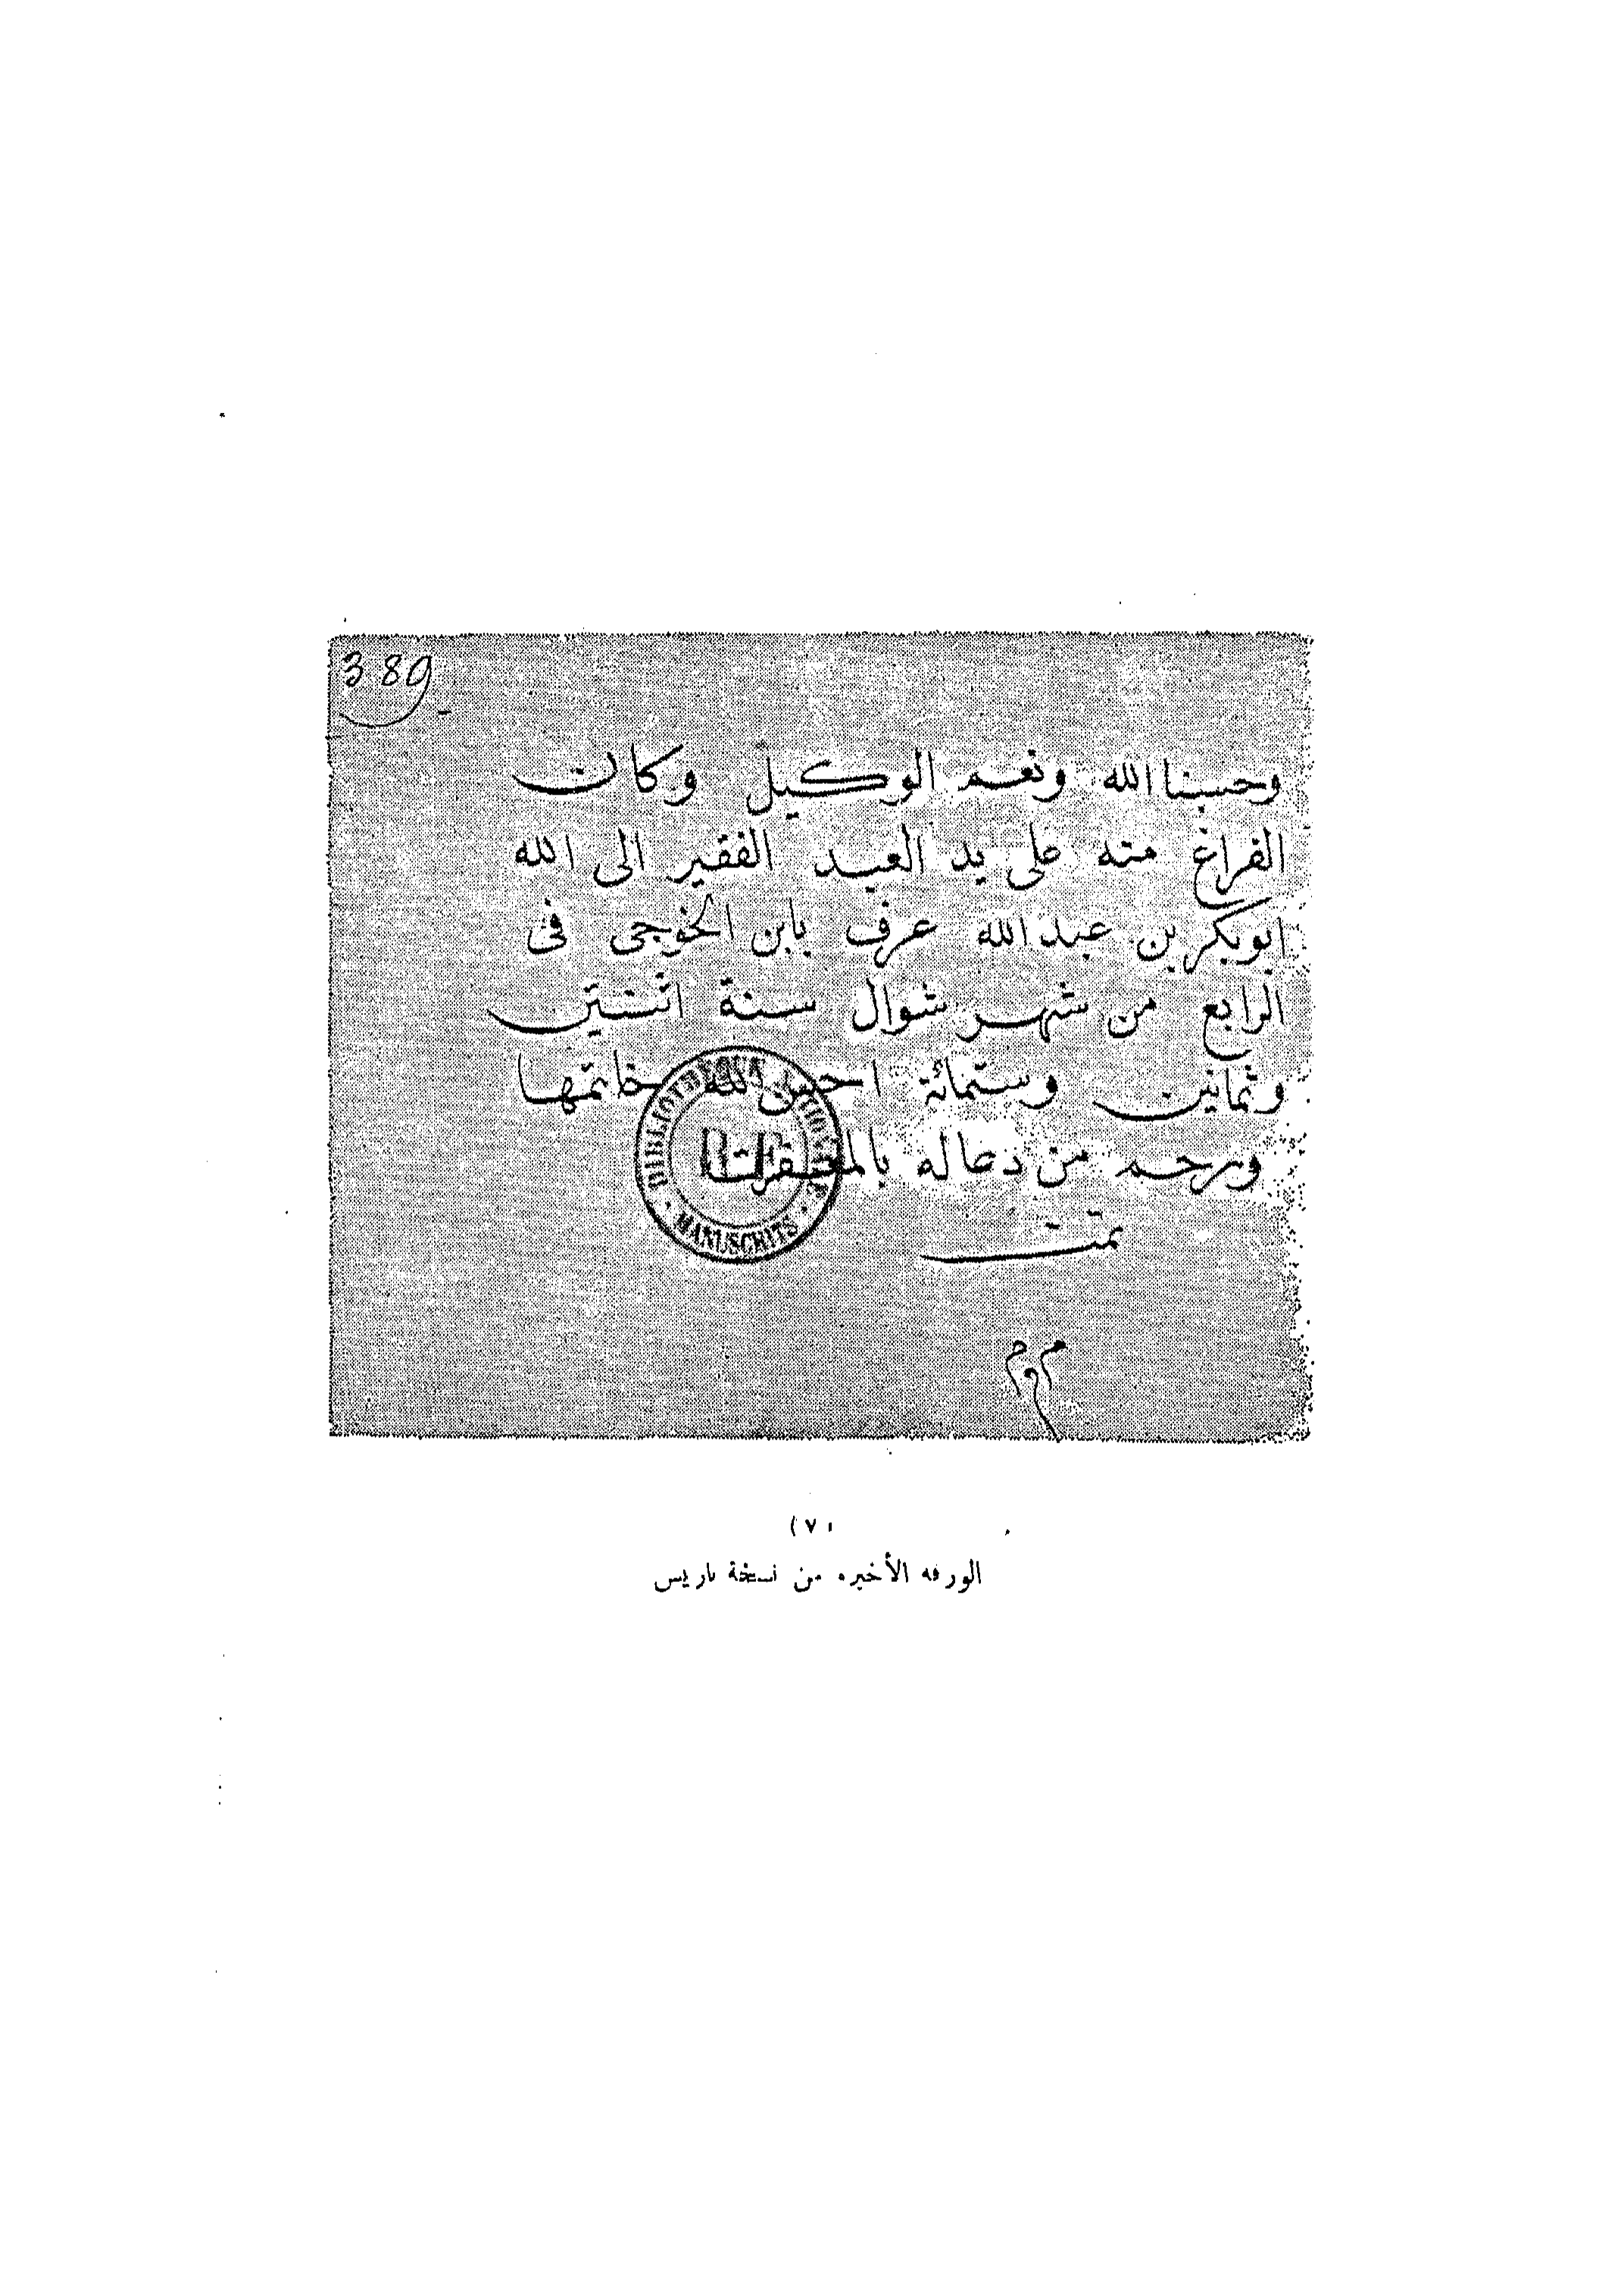 389
وحسبنا الله ونعم الوكيل وكان
الفراغ منه على يد العبد الفقير الى الله
ابوبكر بن عبد الله عرف بابن الخوجى فى
الرابع من شهر شوال سنة اثنتين
وثمانين وستمائة احسن الله خاتمتها
ورحم من دعا له بالمغفرة
تمت
BIBLIOTHEQUE
R F
MANUSCRITS
(٧)
الورقه الأخيره من نسخة باريس